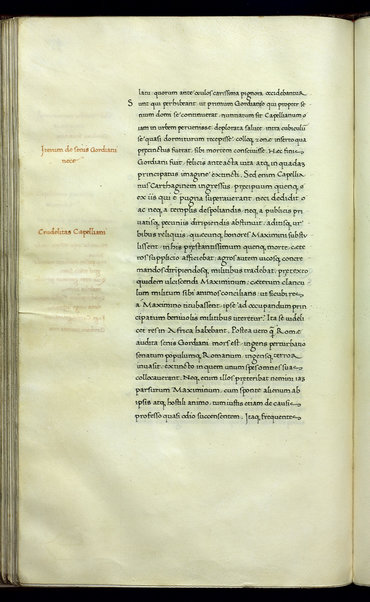 latu quorum ante oculos carissima pignora occidebantur
Sunt qui perhibeant ut primum Gordianus qui propter se
nium domi se continuerat nunciatum sit Capellianum
iam in urbem pervenisse deplorata salute intra cubiculū
se quasi dormiturum recepisse collo zone inserto qua
precinctus fuerat sibi mortem conscivisse. Hęc finis
Iterum de senis Gordiani
nece
Gordiani fuit felicis ante acta vita atq in quadam
principatus imagine extincti. Sed enim Capellia
nus Carthaginem ingressus precipuum quenq
ex iis qui e pugna superaverant neci dedidit
ac neq a templis despoliandis neq a publicis pri
vatisq pecuniis diripiendis abstinuit. aditisq ur
Crudelitas Capelliani
bibus reliquis quicunq honores Maximini substu
lissent in his prestantissimum quenq morte cete
ros supplicio afficiebat agros autem vicosq concre
mandos diripiendosq militibus tradebat pretexto
quidem ulciscendi Maximinum ceterum clancu
lum militum sibi animos concilians ut sicubi res
a Maximino titubassent ipse ad occupandum prin
cipatum benivolis militibus uteretur. Ita se videli
cet res in Africa habebant. Postea vero q Rome
audita senis Gordiani mors est ingens perturbatio
senatum populumq Romanum ingensq terror
invasit extincto in quem unum spes omnes suas
collocaverant. Neq enim illos preteribat nemini iam
parsurum Maximinum cum sponte alienum ab
ipsis atq hostili animo tum iustis etiam de causis
professo quasi odio succensentem. Itaq frequentes